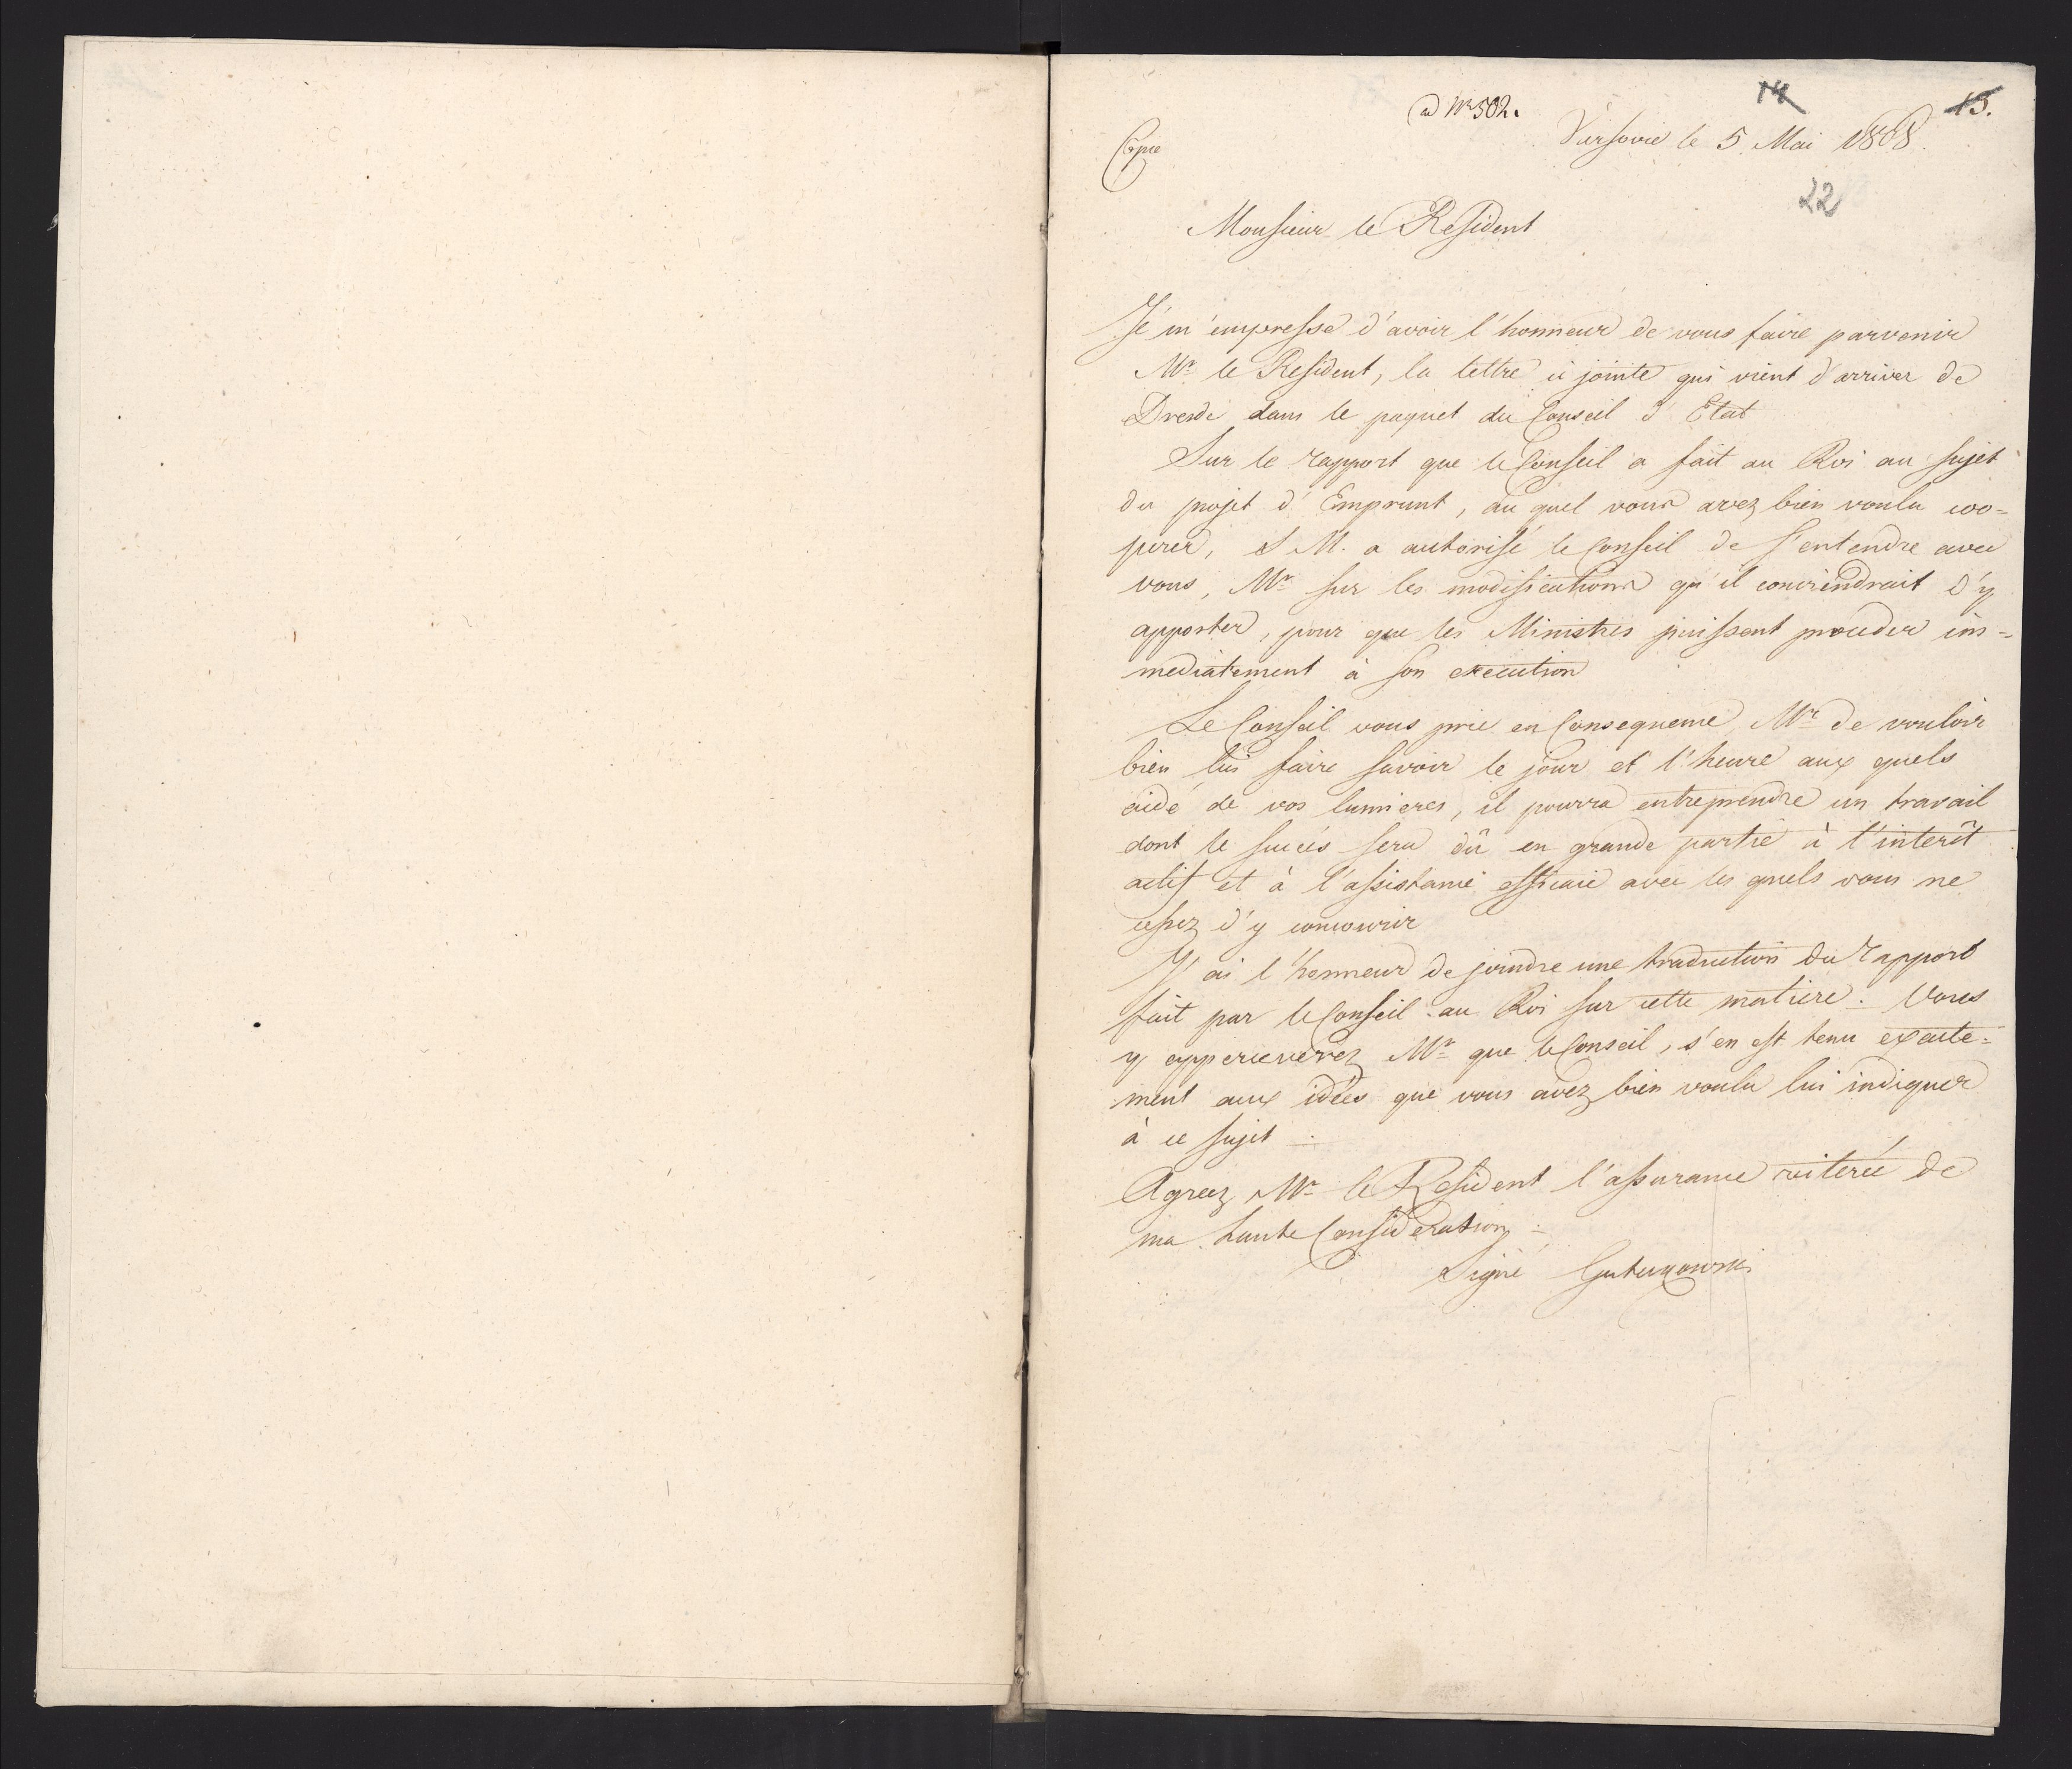 ad Nr 502.
14
13.
Copie
Varsovie le 5 Mai 1808.
22
Monsieur le Resident
Je m'empresse d'avoir l'honneur de vous faire parvenir
Mr le Resident, la lettre ci jointe qui vient d'arriver de
Dresde dans le paquet du Conseil d'Etat
Sur le rapport que le Conseil a fait au Roi au sujet
du projet d'Emprunt, au quel vous avez bien voulu coo=
perer, S. M. a autorisé le Conseil de s'entendre avec
vous, Mr sur les modifications qu'il conviendrait d'y
apporter, pour que les Ministres puissent proceder im=
mediatement à son execution
Le Conseil vous prie en Consequence Mr de vouloir
bien lui faire savoir le jour et l'heure aux quels
aidé de vos lumieres, il pourra entreprendre un travail
dont le succés sera dû en grande partie à l'interêt
actif et à l'assistance efficace avec les quels vous ne
cessez d'y concourir
J'ai l'honneur de joindre une traduction du rapport
fait par le Conseil au Roi sur cette matiere. Vous
y appercevrez Mr que le Conseil, s'en est tenu exacte=
ment aux idées que vous avez bien voulu lui indiquer
à ce sujet.
Agreez Mr le Resident l'assurance reiterée de
ma haute Consideration.
Signé Gutakowski